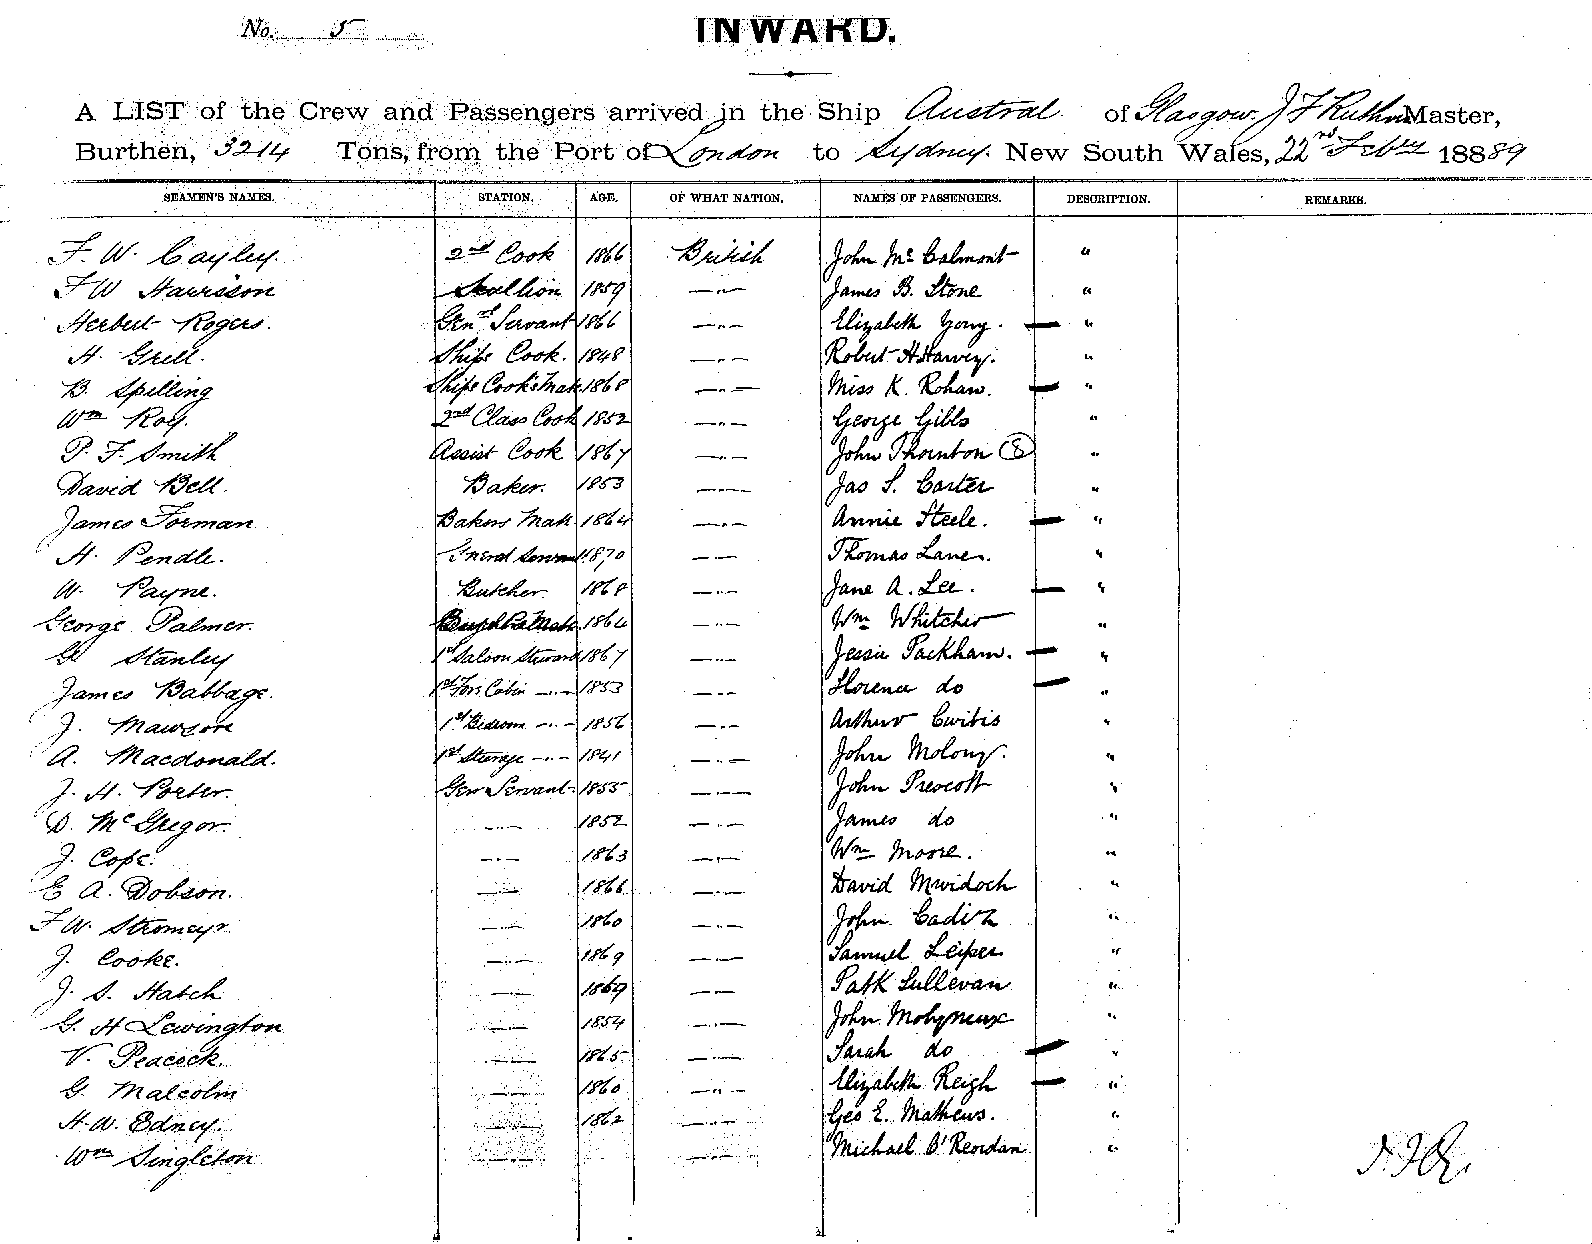 No. 5
INWARD.
A LIST of the Crew and Passengers arrived in the Ship Austral of Glasgow. J F Ruthn Master,
Burthen, 3214 Tons, from the Port of London to Sydney. New South Wales, 22nd Febry 18889
SEAMEN'S NAMES. STATION. AGE. OF WHAT NATION. NAMES OF PASSENGERS. DESCRIPTION. REMARKS.
F. W. Cayley. 2nd Cook 1866 British John Mc Calmont "
F W Harrison Scullion 1859 —"— James B. Stone "
Herbert Rogers. Genrl Servant 1866 —"— Elizabeth Yong. — "
H. Grell. Ships Cook. 1848 —"— Robert H Harvey. "
B. Spilling Ships Cook's Mate 1868 —"— Miss K. Rohan. — "
Wm Roy. 2nd Class Cook 1852 —"— George Gibbs "
P. F. Smith Assist Cook 1867 —"— John Thornton (8) "
David Bell. Baker. 1853 —"— Jas S. Carter "
James Forman Bakers Mate 1864 —"— Annie Steele. — "
H. Pendle. General Servant 1870 —"— Thomas Lane. "
W. Payne. Butcher. 1868 —"— Jane A. Lee. — "
George Palmer. Mate 1864 —"— Wm Whitcher "
G Stanley 1st Saloon Steward 1867 —"— Jessie Packham. — "
James Babbage. 1st Fore Cabin —"— 1853 —"— Florence do — "
J. Mawson 1st Bedroom —"— 1856 —"— Arthur Curtis "
A. Macdonald. 1st Steerage —"— 1841 —"— John Molony. "
J. H. Porter. Gen Servant 1855 —"— John Prescott "
D. McGregor. —"— 1852 —"— James do "
J. Cope. —"— 1863 —"— Wm Moore. "
E A. Dobson. —"— 1866 —"— David Murdoch "
F W. Stromeyr —"— 1860 —"— John "
J. Cooke. —"— 1869 —"— Samuel Leiper "
J. S. Hatch —"— 1869 —"— Patk Sullevan "
G. H Lewington —"— 1854 —"— John Molyneux "
V. Peacock. —"— 1865 —"— Sarah do — "
G. Malcolm —"— 1860 —"— Elizabeth Reigh — "
H. W. Edney. —"— 1862 —"— Geo E. Mathews. "
Wm Singleton —"— —"— Michael O'Reordan "